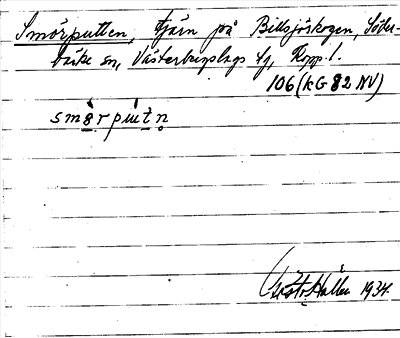 Smörputten, tjärn på Billsjöskogen, Söder-
bärke sn, Västerbergslags tg, Kopp. l.
106 (KG 82 NV)
smörputn̥
Gösta Hallén 1934